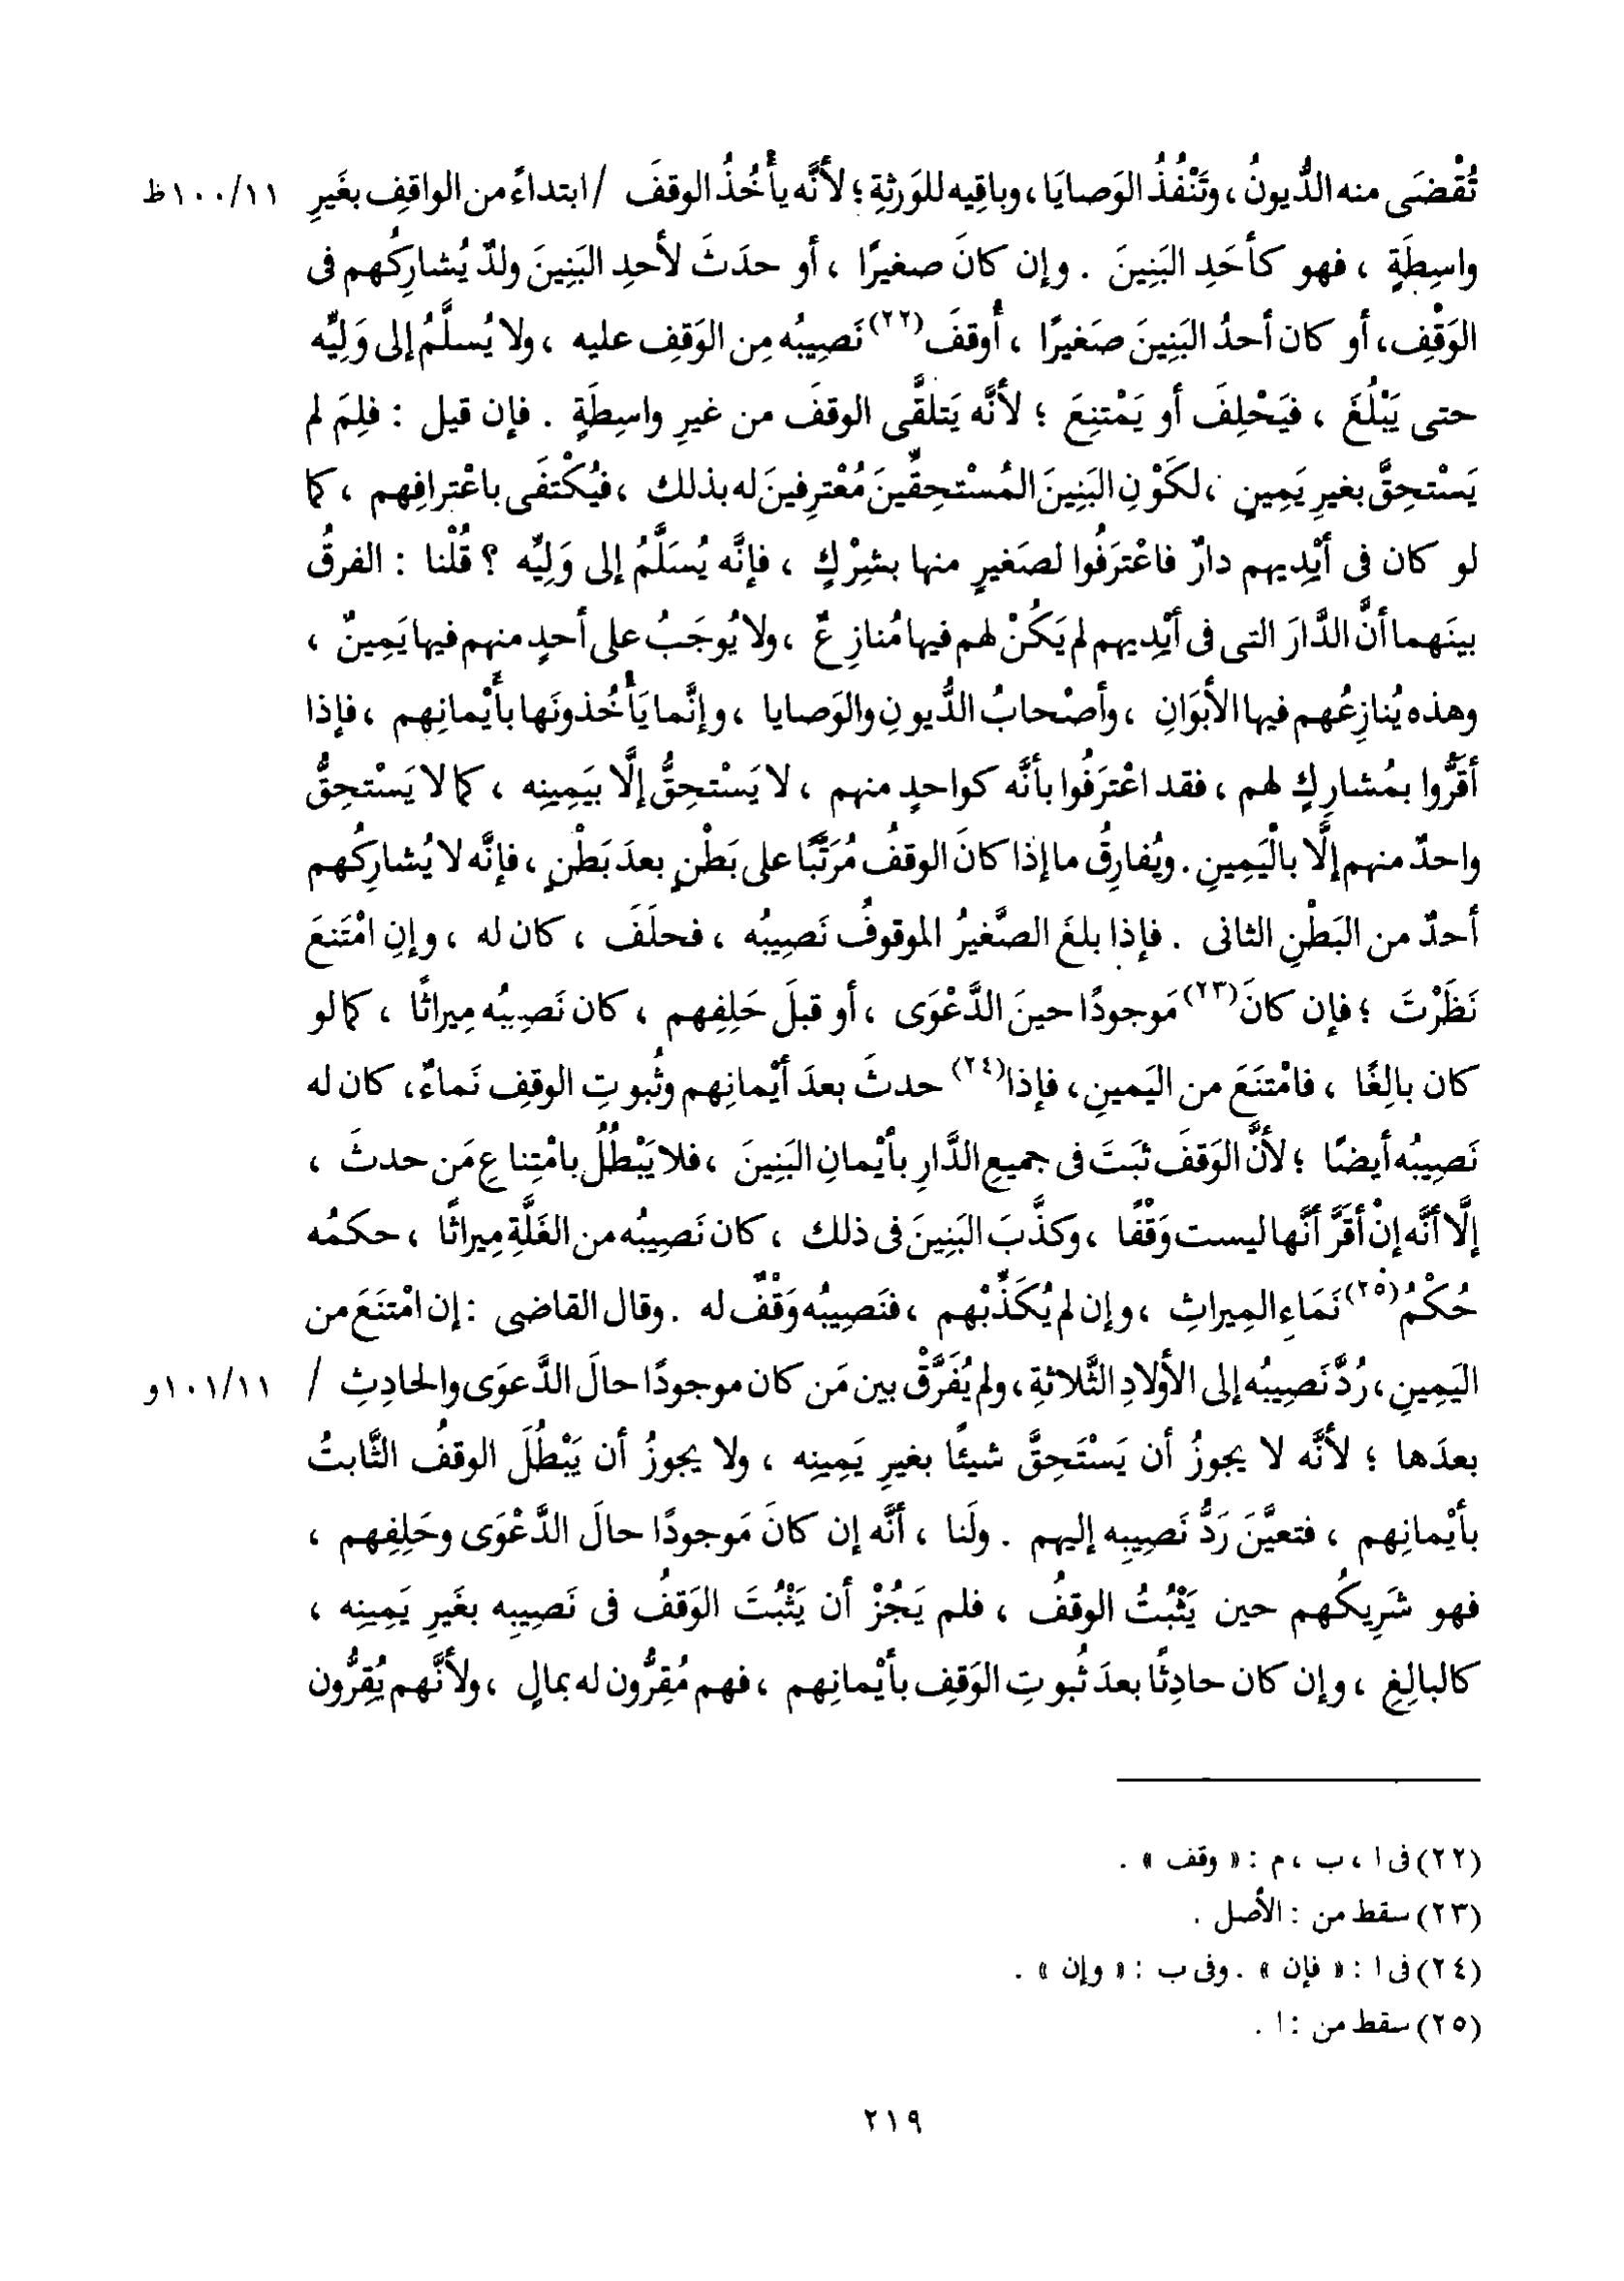 تُقْضَى منه الدُّيونُ ، وتَنْفُذُ الوَصايَا ، وباقِيه للوَرثةِ ؛ لأنَّه يأْخُذُ الوقفَ / ابتداءً من الواقِفِ بغَيرِ ١٠٠/١١ظ
واسِطَةٍ ، فهو كأحَدِ البَنِينَ . وإن كانَ صغيرًا ، أو حدَثَ لأحدِ البَنِينَ ولدٌ يُشارِكُهم فى
الوَقْفِ، أو كان أحدُ البَنِينَ صَغيرًا ، أُوقفَ(٢٢) نَصِيبُه مِن الوَقفِ عليه ، ولا يُسلَّمُ إلى وَلِيِّه
حتى يَبْلُغَ ، فيَحْلِفَ أو يَمْتنِعَ ؛ لأنَّه يَتلقَّى الوقفَ من غيرِ واسِطَةٍ . فإن قيل : فلِمَ لم
يَسْتحِقَّ بغيرِ يَمِينٍ ، لكَوْنِ البَنِينَ المُسْتحِقِّينَ مُعْترِفينَ له بذلك ، فيُكْتفَى باعْترافِهم ، كما
لو كان فى أيْدِيهم دارٌ فاعْترَفُوا لصَغيرٍ منها بشِرْكٍ ، فإنَّه يُسَلَّمُ إلى وَلِيِّه ؟ قُلْنا : الفرقُ
بينَهما أنَّ الدَّارَ التى فى أيْدِيهم لم يَكُنْ لهم فيها مُنازِعٌ ، ولا يُوجَبُ على أحدٍ منهم فيها يَمِينٌ ،
وهذه يُنازِعُهم فيها الأبَوَانِ ، وأصْحابُ الدُّيونِ والوَصايا ، وإنَّما يَأْخُذونَها بأَيْمانِهم ، فإذا
أقَرُّوا بمُشارِكٍ لهم ، فقد اعْترَفُوا بأنَّه كواحدٍ منهم ، لا يَسْتحِقُّ إلَّا بيَمِينِه ، كما لا يَسْتحِقُّ
واحدٌ منهم إلَّا بالْيَمِينِ . ويُفارِقُ ما إذا كانَ الوقفُ مُرَتَّبًا على بَطْنٍ بعدَ بَطْنٍ ، فإنَّه لا يُشارِكُهم
أحدٌ من البَطْنِ الثانى . فإذا بلغَ الصَّغيرُ الموقوفُ نَصِيبُه ، فحلَفَ ، كان له ، وإنِ امْتَنعَ
نَظَرْتَ ؛ فإن كانَ(٢٣) مَوجودًا حينَ الدَّعْوَى ، أو قبلَ حَلِفِهم ، كان نَصِيبُه مِيراثًا ، كما لو
كان بالِغًا ، فامْتنَعَ من اليَمينِ، فإذا(٢٤) حدثَ بعدَ أيْمانِهم وثُبوتِ الوقفِ نَماءٌ، كان له
نَصِيبُه أيضًا ؛ لأنَّ الوَقفَ ثبَتَ فى جميعِ الدَّارِ بأيْمانِ البَنِينَ ، فلا يَبْطُلُ بامْتِناعِ مَن حدثَ ،
إلَّا أنَّه إنْ أقَرَّ أنَّها ليست وَقْفًا ، وكذَّبَ البَنِينَ فى ذلك ، كان نَصِيبُه من الغَلَّةِ مِيراثًا ، حكمُه
حُكْمُ(٢٥) نَمَاءِ المِيراثِ ، وإن لم يُكَذِّبْهم ، فنَصِيبُه وَقْفٌ له . وقال القاضى : إن امْتنَعَ من
اليَمِينِ، رُدَّ نَصِيبُه إلى الأولادِ الثَّلاثةِ، ولم يُفَرَّقْ بين مَن كان موجودًا حالَ الدَّعوَى والحادِثِ / ١٠١/١١و
بعدَها ؛ لأنَّه لا يجوزُ أن يَسْتَحِقَّ شيئًا بغيرِ يَمِينِه ، ولا يجوزُ أن يَبْطُلَ الوقفُ الثَّابتُ
بأيْمانِهم ، فتعيَّنَ رَدُّ نَصِيبِه إليهم . ولَنا ، أنَّه إن كانَ مَوجودًا حالَ الدَّعْوَى وحَلِفِهم ،
فهو شَرِيكُهم حين يَثْبُتُ الوقفُ ، فلم يَجُزْ أن يَثْبُتَ الوَقفُ فى نَصِيبِه بغَيرِ يَمِينِه ،
كالبالِغِ ، وإن كان حادِثًا بعدَ ثُبوتِ الوَقفِ بأيْمانِهم ، فهم مُقِرُّون له بمالٍ ، ولأنَّهم يُقِرُّون
(٢٢) فى ا ، ب ، م : « وقف » .
(٢٣) سقط من : الأصل .
(٢٤) فى ا : « فإن » . وفى ب : « وإن » .
(٢٥) سقط من : ا .
٢١٩